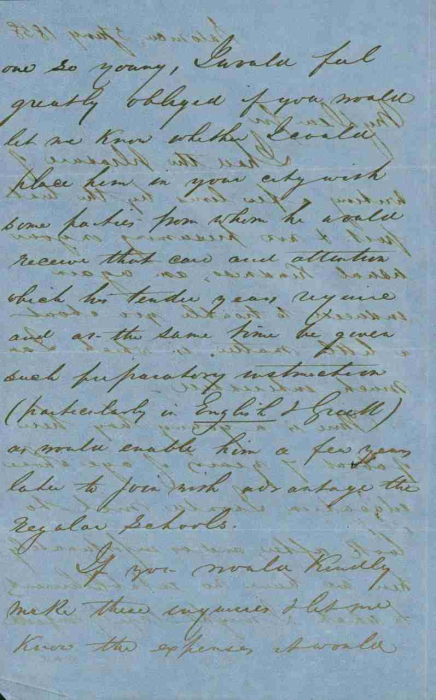 one so young, I would feel
greatly obliged if you would
let me know whether I could
place him in your city with
some parties from whom he would
receive that care and attention
which his tender years require
and at the same time be given
such preparatory instruction
(particularly in English & Greek)
as would enable him a few years
later to join with advantage the
regular Schools.
If you would kindly
make these inquiries & let me
know the expenses it would